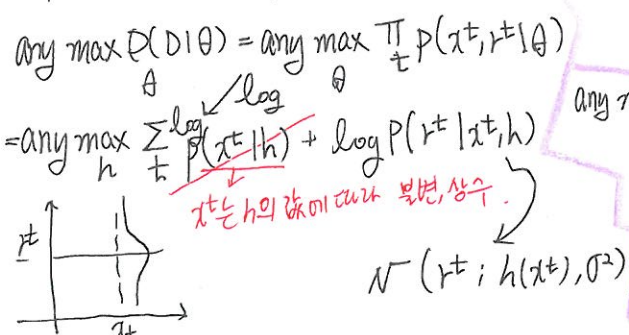 arg max P(D|θ) = arg max ∏ P(x^t, r^t|θ)
θ θ t
log
= arg max Σ log P(x^t|h) + log P(r^t|x^t, h)
h t
x^t는 h의 값에 따라 불변, 상수.
arg m
r^t
N(r^t ; h(x^t), σ²)
x^t